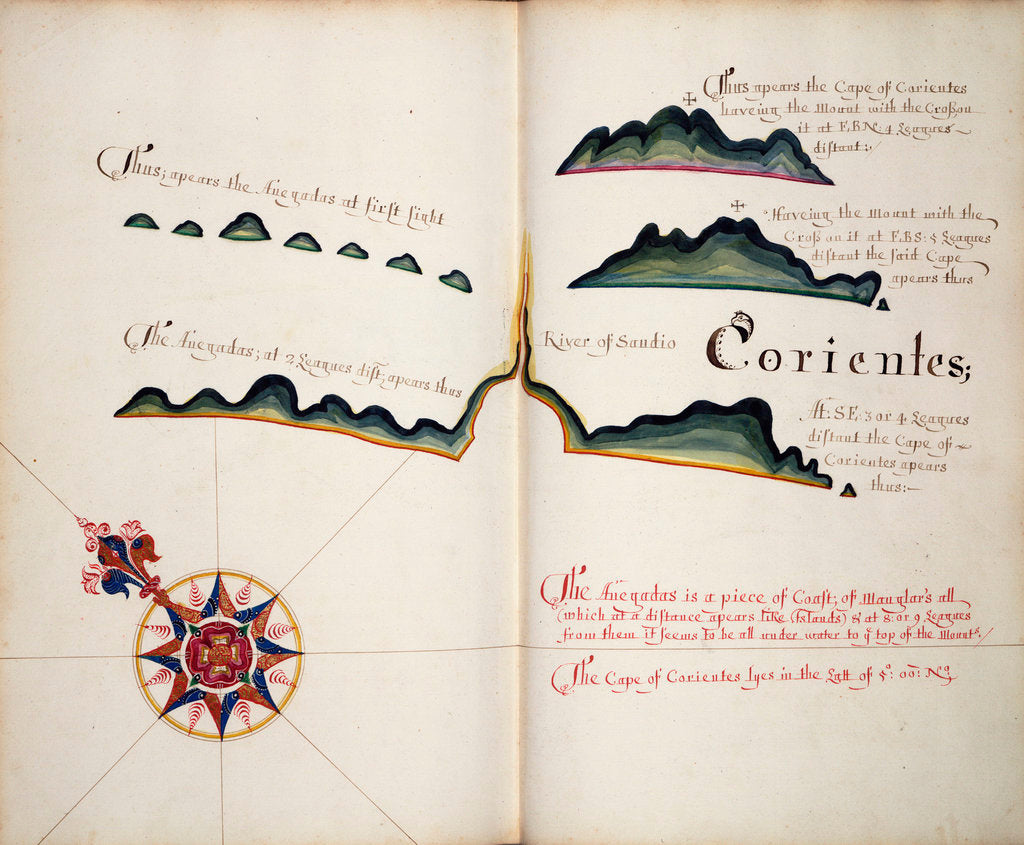 Thus; apears the Anegadas at first sight
The Anegadas; at 2 Leagues dist; apears thus
Thus apears the Cape of Corientes
haveing the Mount with the Cross on
it at E.B.N: 4 Leagues
distant:
Haveing the Mount with the
Cross on it at E.B.S: 5 Leagues
distant the said Cape
apears thus
River of Sandio
Corientes;
At: S.E. 3 or 4 Leagues
distant the Cape of
Corientes apears
thus:
The Anegadas is a piece of Coast; of Manglar's all
(which at a distance apears like Islands) & at 8: or 9 Leagues
from them it seems to be all under water to yͤ top of the Mountˢ
The Cape of Corientes lyes in the Latt of 5°: 00: Nᵒ